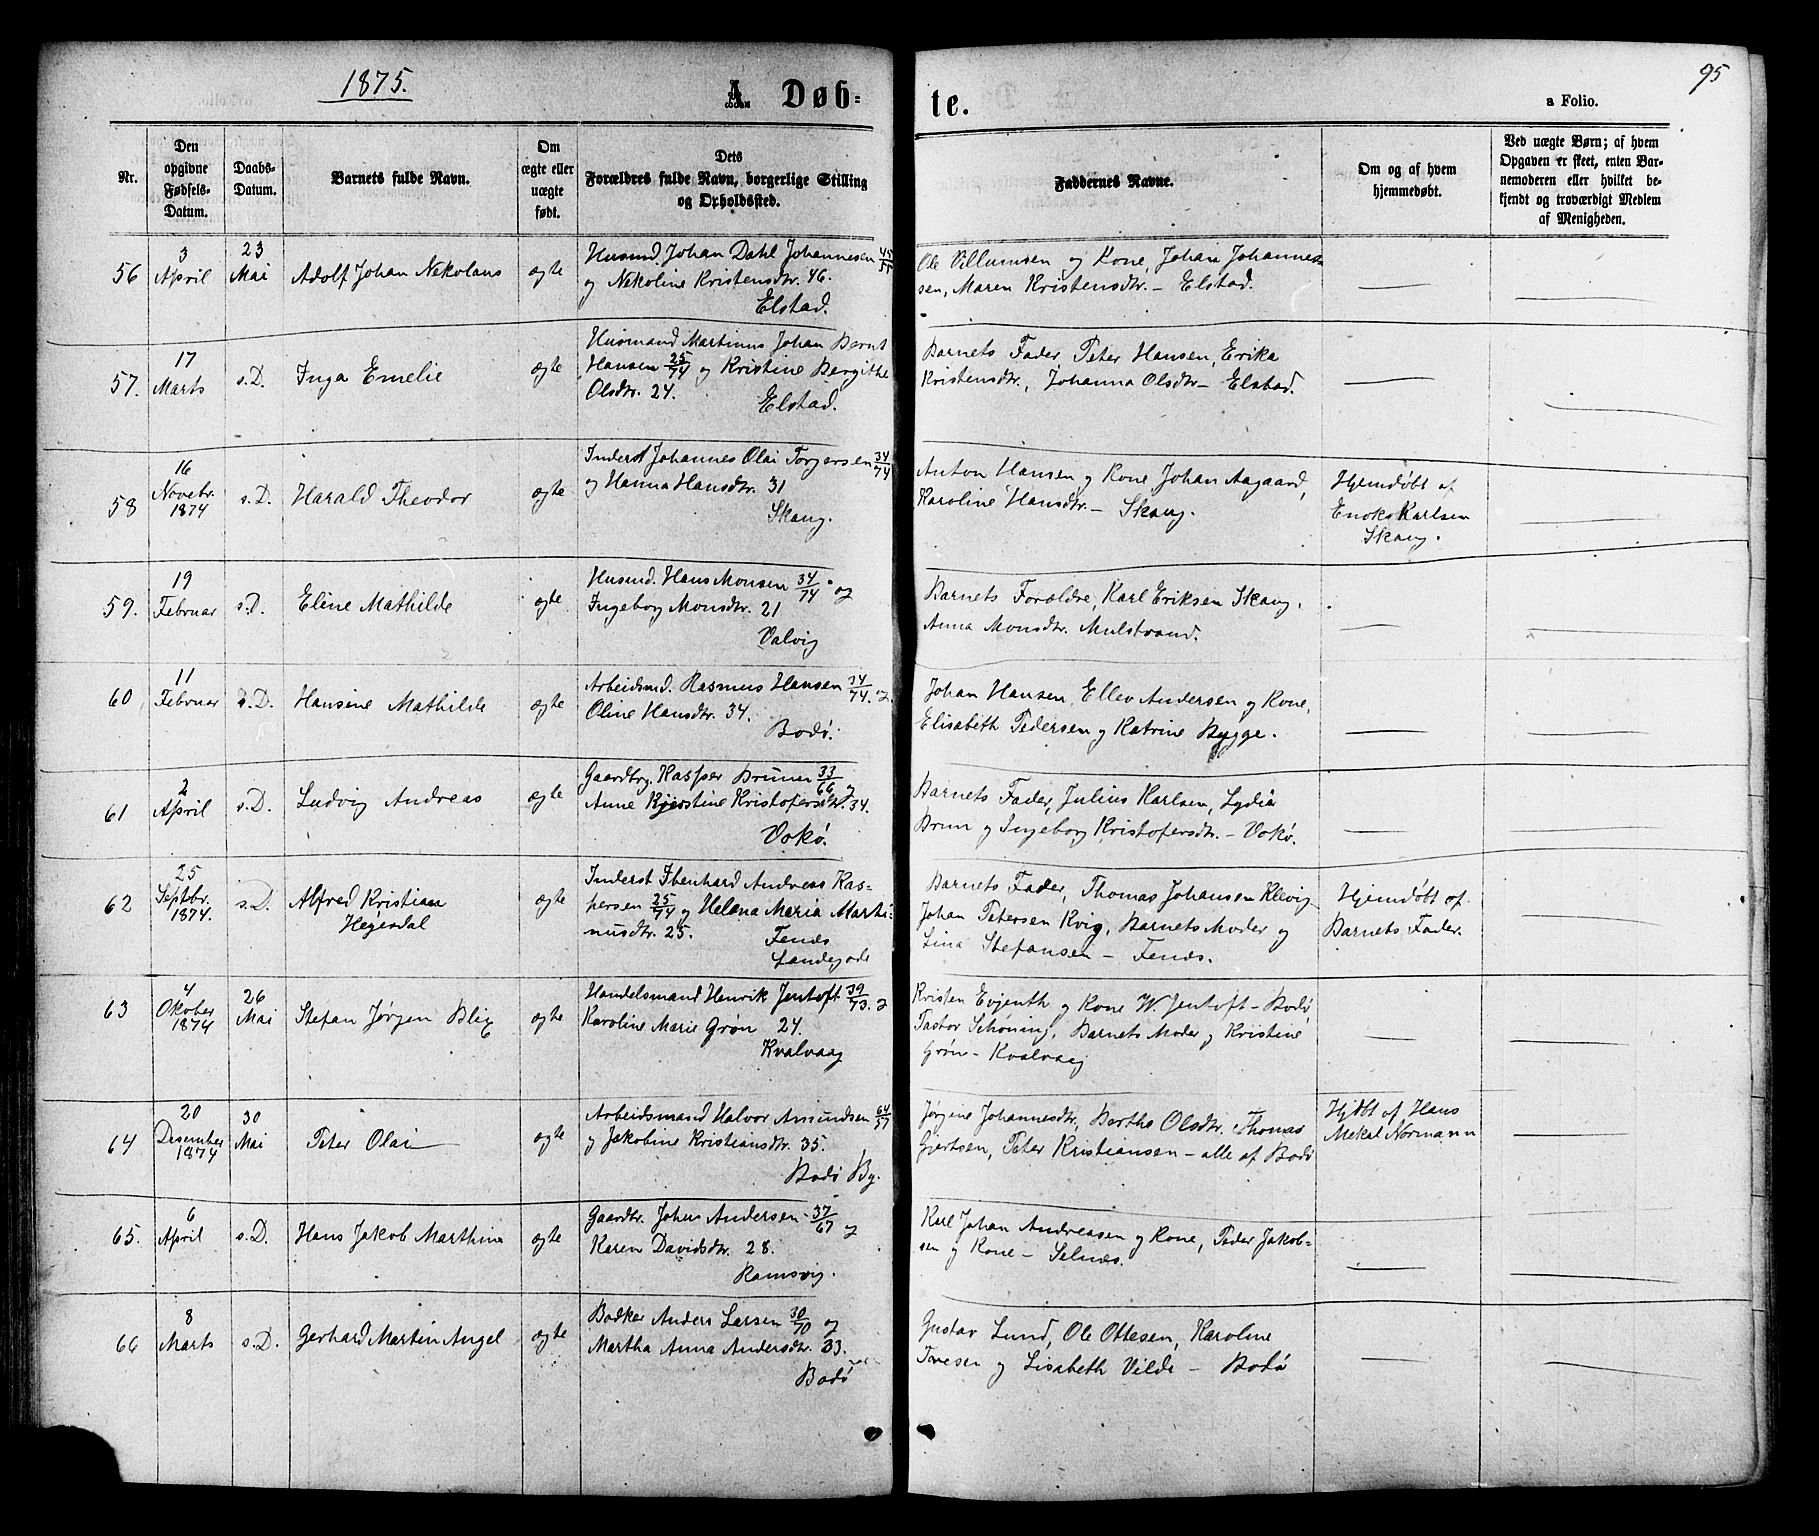 1875.
A Døb=
te.
95
a Folio.
Nr.
Den opgivne Fødsels-Datum.
Daabs-Datum.
Barnets fulde Navn.
Om ægte eller uægte født.
Dets Forældres fulde Navn, borgerlige Stilling og Opholdssted.
Faddernes Navne.
Om og af hvem hjemmedøbt.
Ved uægte Børn; af hvem Opgaven er skeet, enten Barnemoderen eller hvilket bekjendt og troværdigt Medlem af Menigheden.
56
3 April
23 Mai
Adolf Johan Nikolaus
ægte
Husmd Johan Dahl Johannesen 45/55
og Nekoline Kristensdtr. 46.
Elstad.
Ole Villumsen og Kone, Johan Johannes-
sen, Maren Kristensdtr. – Elstad.
57.
17 Marts
s.D.
Inga Emelie
ægte
Husmand Martinus Johan Bernt
Hansen 25/74 og Kristine Bergithe
Olsdtr. 24.
Elstad.
Barnets Fader Peter Hansen, Erika
Kristensdtr., Johanna Olsdtr – Elstad.
58
16 Novebr. 1874
s.D.
Harald Theodor
ægte
Inderst Johannes Olai Torgersen 34/74
og Hanna Hansdtr. 31
Skaug.
Anton Hansen og Kone, Johan Aagaard,
Karoline Hansdtr. – Skaug.
Hjemdøbt af
Enok Karlsen
Skaug.
59.
19 Februar
s.D.
Eline Mathilde
ægte
Husmd. Hans Monsen 34/74 og
Ingeborg Monsdtr. 21
Valvig
Barnets Forældre, Karl Eriksen Skaug,
Anna Monsdtr. Mulstrand.
60
11 Februar
s.D.
Hansine Mathilde
ægte
Arbeidsmd. Rasmus Hansen 34/74. og
Oline Hansdtr. 34.
Bodø.
Johan Hansen, Ellev Andersen og Kone,
Elisabeth Pedersen og Katrine Bygge.
61
2 April
s.D.
Ludvig Andreas
ægte
Gaardbrg. Kasper Bruun 33/66 og
Anne Kjerstine Kristofersdtr. 34.
Vokø.
Barnets Fader, Julius Karlsen, Lydia
Brun og Ingeborg Kristofersdtr. – Vokø.
62
25 Septbr. 1874.
s.D.
Alfred Kristian
Hegesdal
ægte
Inderst Ebenhard Andreas Kas-
persen 25/74 og Helena Maria Marti-
nusdtr. 25.
Fenæs
Landegode
Barnets Fader, Thomas Johansen Klevig
Johan Petersen Kvig, Barnets Moder og
Lina Stefansen – Fenæs.
Hjemdøbt af
Barnets Fader.
63
4 Oktober 1874
26 Mai
Stefan Jørgen Blix
ægte
Handelsmand Henrik Jentoft 39/73. og
Karoline Marie Grøn 24.
Kvalvaag
Kristen Evjenth og Kone W. Jentoft – Bodø
Pastor Schøning, Barnets Moder og Kristine
Grøn – Kvalvaag
64
20 Desember 1874
30 Mai
Peter Olai
ægte
Arbeidsmand Halvor Amundsen 64/57
og Jakobine Kristiansdtr. 35.
Bodø By.
Jørgine Johannesdtr, Berthe Olsdtr, Thomas
Gjertsen, Peter Kristiansen – alle af Bodø
Hjdbt af Hans
Mekal Normann
65.
6 April
s.D.
Hans Jakob Marthin
ægte
Gaardbr. Johan Andersen 37/67 og
Karen Davidsdtr. 28.
Ramsvig.
Karl Johan Andreasen og Kone, Peder Jakob-
sen og Kone – Selnæs.
66
8 Marts
s.D.
Gerhard Martin Angel
ægte
Bødker Anders Larsen 30/70 og
Martha Anna Andersdtr. 33.
Bodø
Gustav Lund, Ole Ottesen, Karoline
Tonesen og Lisabeth Vilde – Bodø